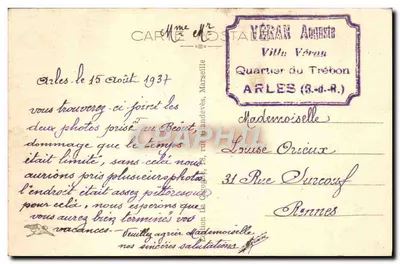 Mme Mr
CARTE POSTALE
VÉRAN Auguste
Villa Véran
Quartier du Trébon
ARLES (B.-d.-R.)
Arles le 15 Août 1937
vous trouverez-ci joint les
deux photos
dommage que le temps
était limité, sans celà nous
aurions pris plusieurs photos
l'endroit était assez pittoresque
pour celà, nous espérons que
vous aurez bien terminé vos
vacances.- Veuillez agréer Mademoiselle
nos sincères salutations
Marseille
Mademoiselle
Louise Orieux
31 Rue Surcouf
Rennes